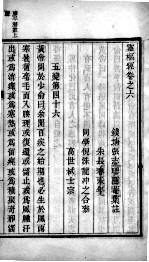 靈樞經卷之六
錢塘張志聰隱菴集註
朱長春永年
同學倪洙龍冲之合參
高世栻士宗
五變第四十六
黃帝問於少俞曰余聞百疾之始期也必生於風雨
寒暑循毫毛而入腠理或復還或留止或為風腫汗
出或為消癉或為寒熱或為留痹或為積聚奇邪淫